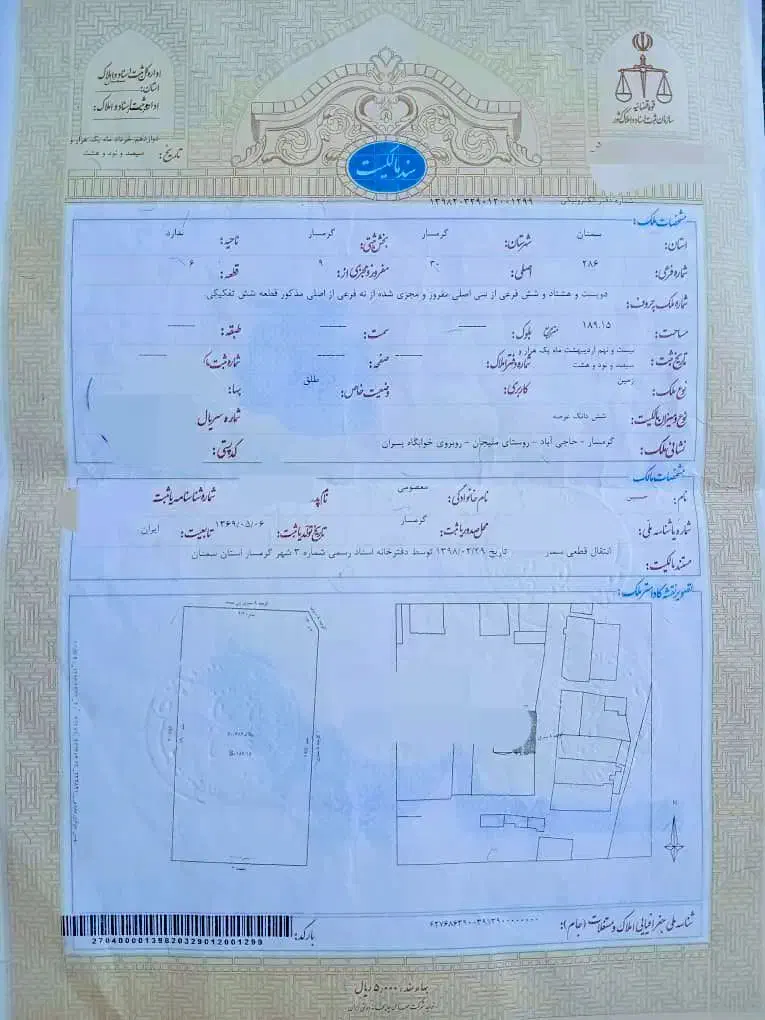 قوه قضائیه
سازمان ثبت اسناد و املاک کشور
اداره کل ثبت اسناد و املاک
استان:
اداره ثبت اسناد و املاک:
تاریخ: دوازدهم خرداد ماه یک هزار و
سیصد و نود و هشت
سند مالکیت
شماره دفتر الکترونیکی ۱۳۹۸۲۰۳۲۹۰۱۲۰۰۱۲۹۹
مشخصات ملک:
استان: سمنان شهرستان: گرمسار بخش ثبتی: گرمسار ناحیه: ندارد
شماره فرعی: ۲۸۶ اصلی: ۳۰ مفروز و مجزی از: ۹ قطعه: ۶
شماره ملک بحروف: دویست و هشتاد و شش فرعی از سی اصلی مفروز و مجزی شده از نه فرعی از اصلی مذکور قطعه شش تفکیکی.
مساحت: ۱۸۹.۱۵ مترمربع بلوک: سمت: طبقه:
تاریخ ثبت: بیست و نهم اردیبهشت ماه یک هزار و
سیصد و نود و هشت شماره دفتر املاک: صفحه: شماره ثبت:
نوع ملک: زمین کاربری: وضعیت خاص: طلق بهاء:
نوع و میزان مالکیت: شش دانگ عرصه شماره سریال
نشانی ملک: گرمسار - حاجی آباد - روستای ملیجان - روبروی خوابگاه پسران کد پستی:
مشخصات مالک:
نام: نام خانوادگی: معصومی نام پدر: شماره شناسنامه یا ثبت
شماره یا شناسه ملی: محل صدور یا ثبت: گرمسار تاریخ تولد یا ثبت: ۱۳۶۹/۰۵/۰۶ تابعیت: ایران
مستند مالکیت: انتقال قطعی سند تاریخ ۱۳۹۸/۰۲/۲۹ توسط دفترخانه اسناد رسمی شماره ۳ شهر گرمسار استان سمنان
تصویر نقشه کاداستر ملک:
N
شناسه ملی جغرافیایی املاک و مستغلات (جام): ۶۲۷۶۸۶۳۹۰۰۳۹۱۳۹۰۰۰۰۰۰۰۰۰
بارکد:
27040000139820329012001299
بهاء سند: ۵٫۰۰۰ ریال